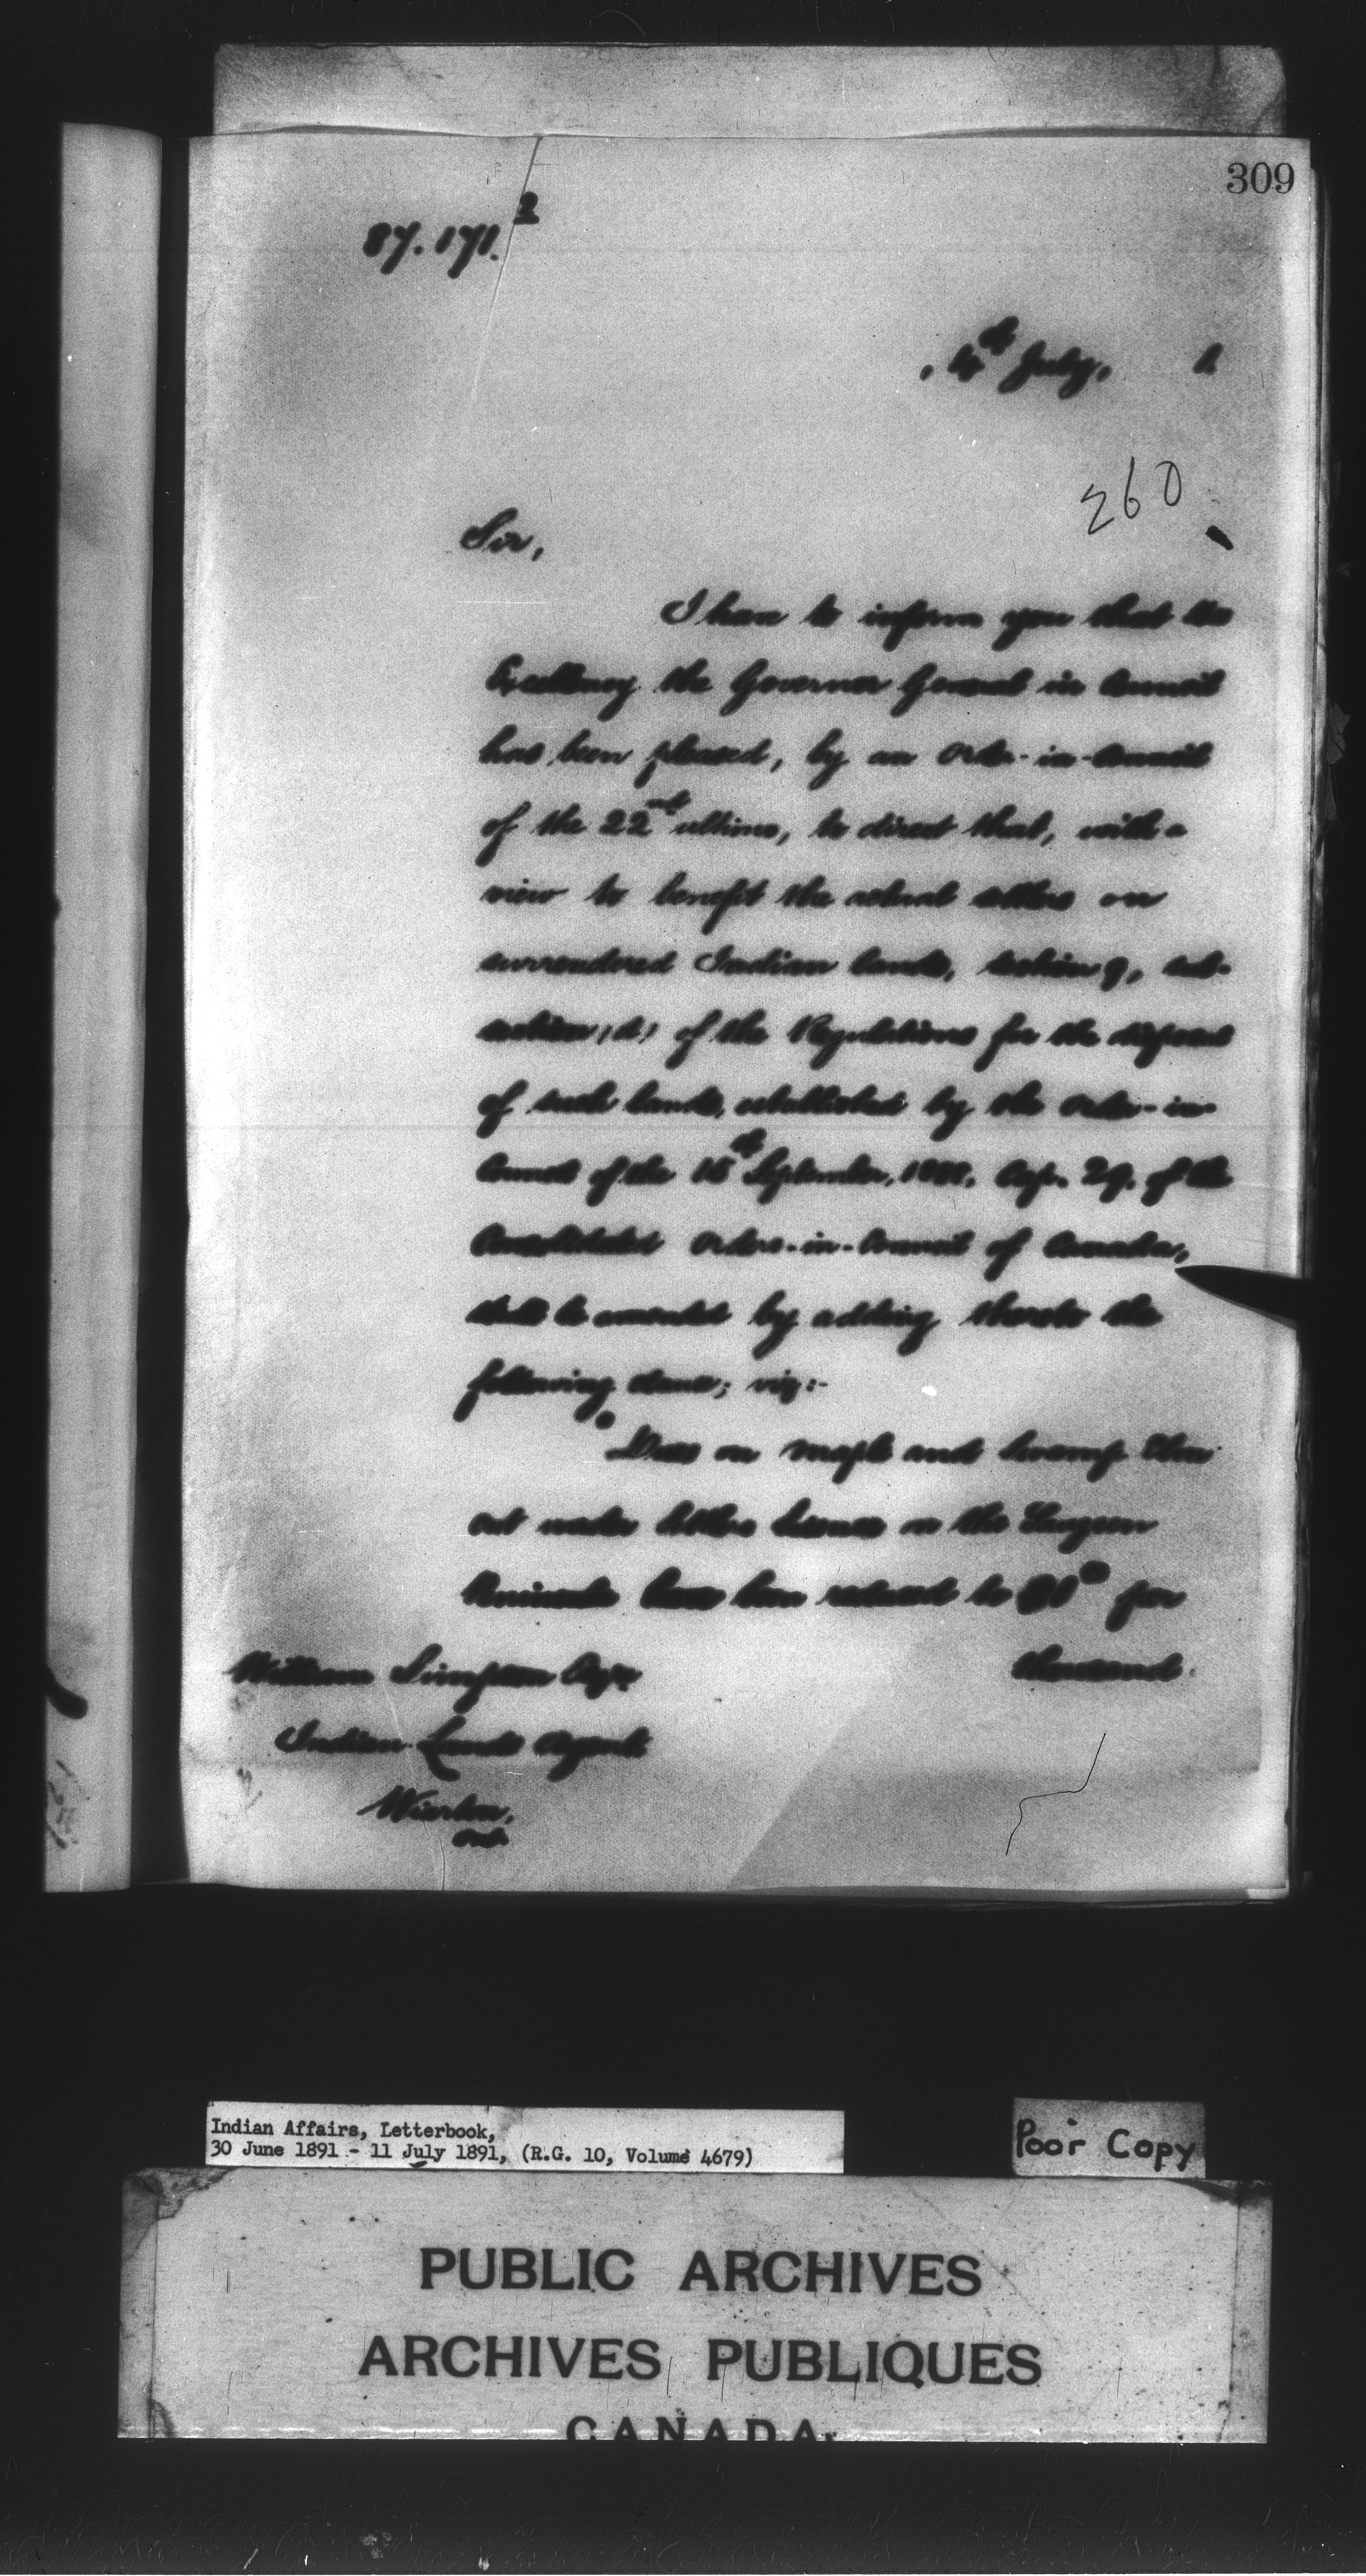 309
87.171. 2
, 4th July, 1
260
Sir,
I have to inform you that His
Excellency the Governor General in Council
has been pleased, by an Order-in-Council
of the 22nd ultimo, to direct that, with a
view to benefit the actual settlers on
surrendered Indian lands, section 9, sub-
section (d) of the Regulations for the disposal
of such lands, established by the Order-in-
Council of the 15th September, 1888, Cap. 29. of the
Consolidated Orders-in-Council of Canada,
shall be amended by adding thereto the
following clause; viz:-
"Dues on maple and swamp Elm
cut under settlers license in the
Peninsula have been reduced to $1.00 per
thousand.
William Simpson Esqr.
Indian Lands Agent
Wiarton,
Ont.
Indian Affairs, Letterbook,
30 June 1891 - 11 July 1891, (R.G. 10, Volume 4679)
Poor Copy
PUBLIC ARCHIVES
ARCHIVES PUBLIQUES
CANADA